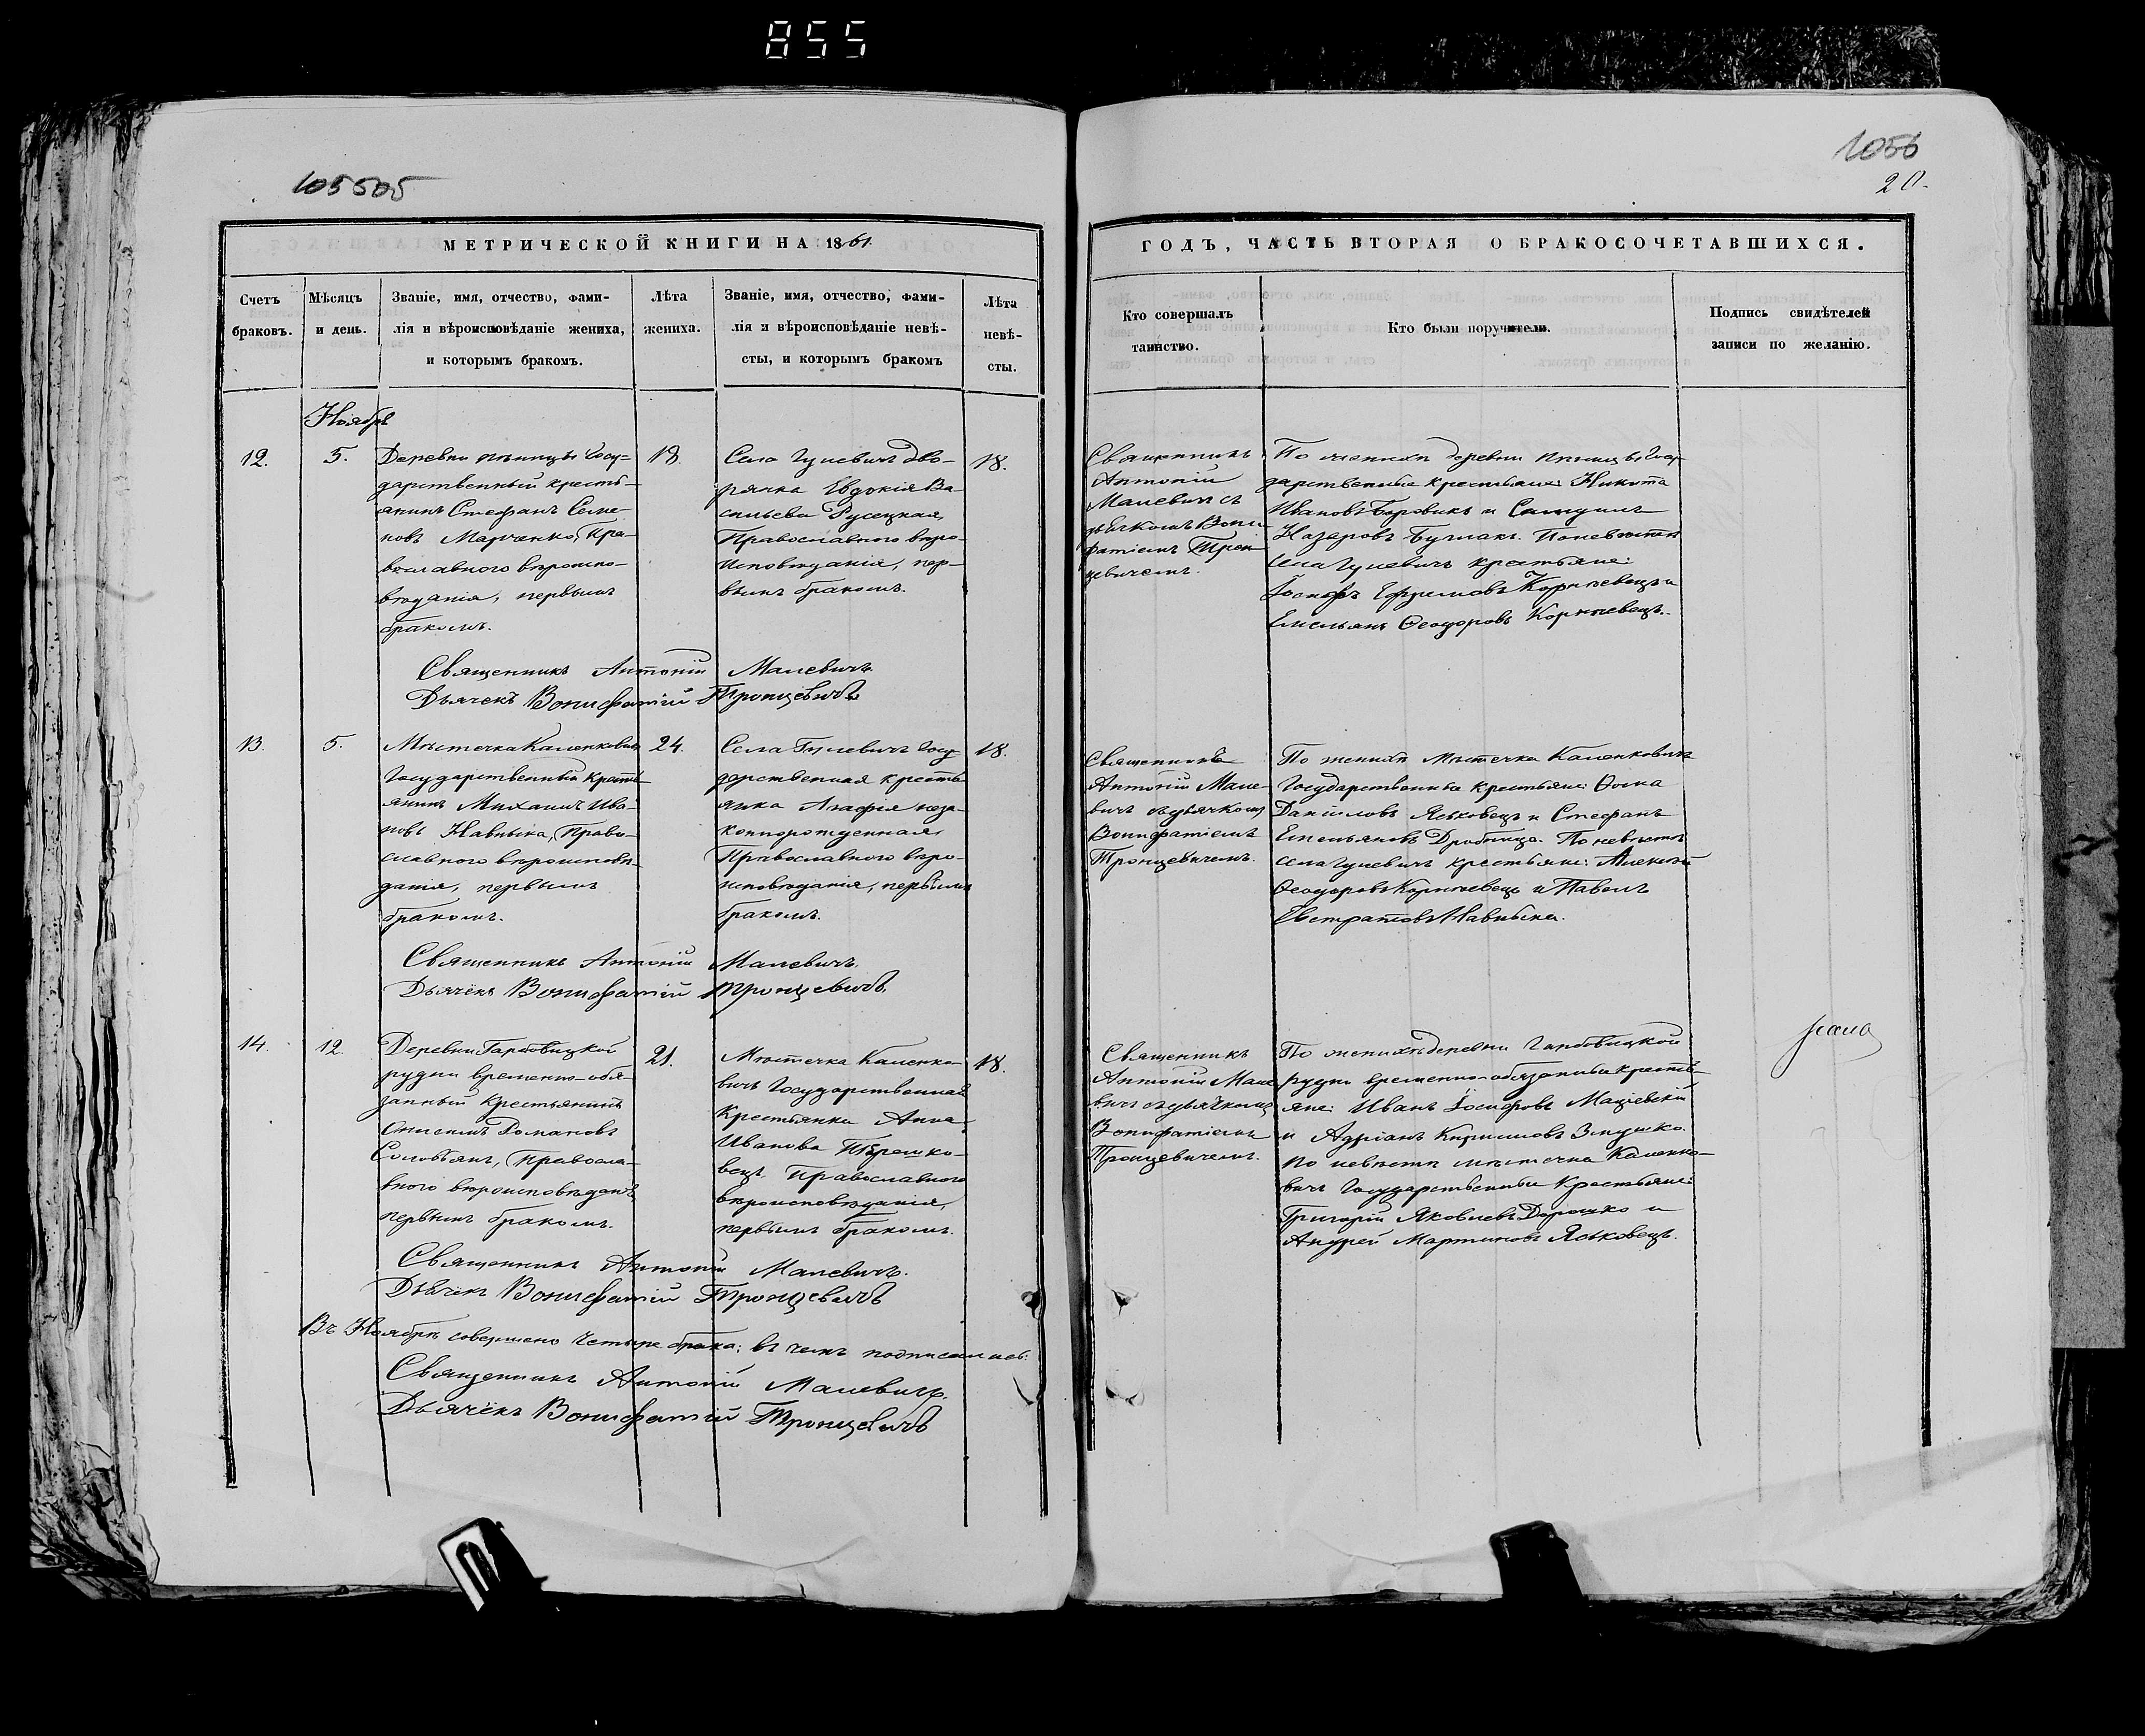 855
105505
1056
20.
МЕТРИЧЕСКОЙ КНИГИ НА 1861.
ГОДЪ, ЧАСТЬ ВТОРАЯ О БРАКОСОЧЕТАВШИХСЯ.
Счетъ
браковъ.
Мѣсяцъ
и день.
Званіе, имя, отчество, фами-
лія и вѣроисповѣданіе жениха,
и которымъ бракомъ.
Лѣта
жениха.
Званіе, имя, отчество, фами-
лія и вѣроисповѣданіе невѣ-
сты, и которымъ бракомъ
Лѣта
невѣ-
сты.
Кто совершалъ
таинство.
Кто были поручители.
Подпись свидѣтелей
записи по желанію.
Ноябрь
12.
5.
Деревни Птицы Госу-
дарственный кресть-
янинъ Стефанъ Семе-
новъ Марченко, Пра-
вославного вѣроиспо-
вѣданія, первымъ
бракомъ.
18.
Села Гулевичъ дво-
рячка Евдокія Ва-
сильева Русецкая,
Православного вѣро-
исповѣданія, пер-
вымъ бракомъ.
18.
Священникъ
Антоній
Малевичъ съ
дьячкомъ Вони-
фатіемъ Трон-
цевичемъ.
По женихѣ деревни Птицы Госу-
дарственные крестьяне: Никита
Ивановъ Боровикъ и
Назаровъ По невѣстѣ
села Гулевичъ крестьяне:
Іосифъ Ефремовъ Корнѣевецъ и
Емельянъ Ѳеодоровъ Корнѣевецъ.
Священникъ Антоній Малевичъ.
Дьячекъ Вонифатій Тронцевичъ
13.
5.
Мѣстечка Каленковичъ
Государственный кресть-
янинъ Михаилъ Ива-
новъ Навныка, Право-
славного вѣроисповѣ-
данія, первымъ
бракомъ.
24.
Села Гулевичъ Госу-
дарственная кресть-
янка Агафія неза-
коннорожденная,
Православного вѣро-
исповѣданія, первымъ
бракомъ.
18.
Священникъ
Антоній Мале-
вичъ съ дьячкомъ
Вонифатіемъ
Тронцевичемъ.
По женихѣ мѣстечка Каленковичъ
Государственные крестьяне: Ѳома
Даниловъ Яськовецъ и Стефанъ
Емельяновъ Дробница. По невѣстѣ
села Гулевичъ крестьяне: Алексѣй
Ѳеодоровъ Корнѣевецъ и Павелъ
Евстратовъ Навныка.
Священникъ Антоній Малевичъ.
Дьячекъ Вонифатій Тронцевичъ.
14.
12.
Деревни Гарбовицкой
рудни временно-обя-
занный Крестьянинъ
Онисимъ Романовъ
Соловьянъ, Правосла-
вного вѣроисповѣданія
первымъ бракомъ.
21.
Мѣстечка Каленко-
вичъ Государственная
Крестьянка Анна
Иванова
Православного
вѣроисповѣданія,
первымъ бракомъ.
18.
Священникъ
Антоній Мале-
вичъ съ дьячкомъ
Вонифатіемъ
Тронцевичемъ.
По женихѣ деревни Гарбовицкой
рудни временно-обязанные кресть-
яне: Иванъ Іосифовъ Маціевскій
и Адріанъ Кириловъ Змушко.
По невѣстѣ мѣстечка Каленко-
вичъ Государственные Крестьяне:
Григорій Яковлевъ Дорошко и
Андрей Мартиновъ Яськовецъ.
Священникъ Антоній Малевичъ.
Дьячекъ Вонифатій Тронцевичъ
Въ Ноябрѣ совершено четыре брака; въ чемъ подписались:
Священникъ Антоній Малевичъ.
Дьячекъ Вонифатій Тронцевичъ